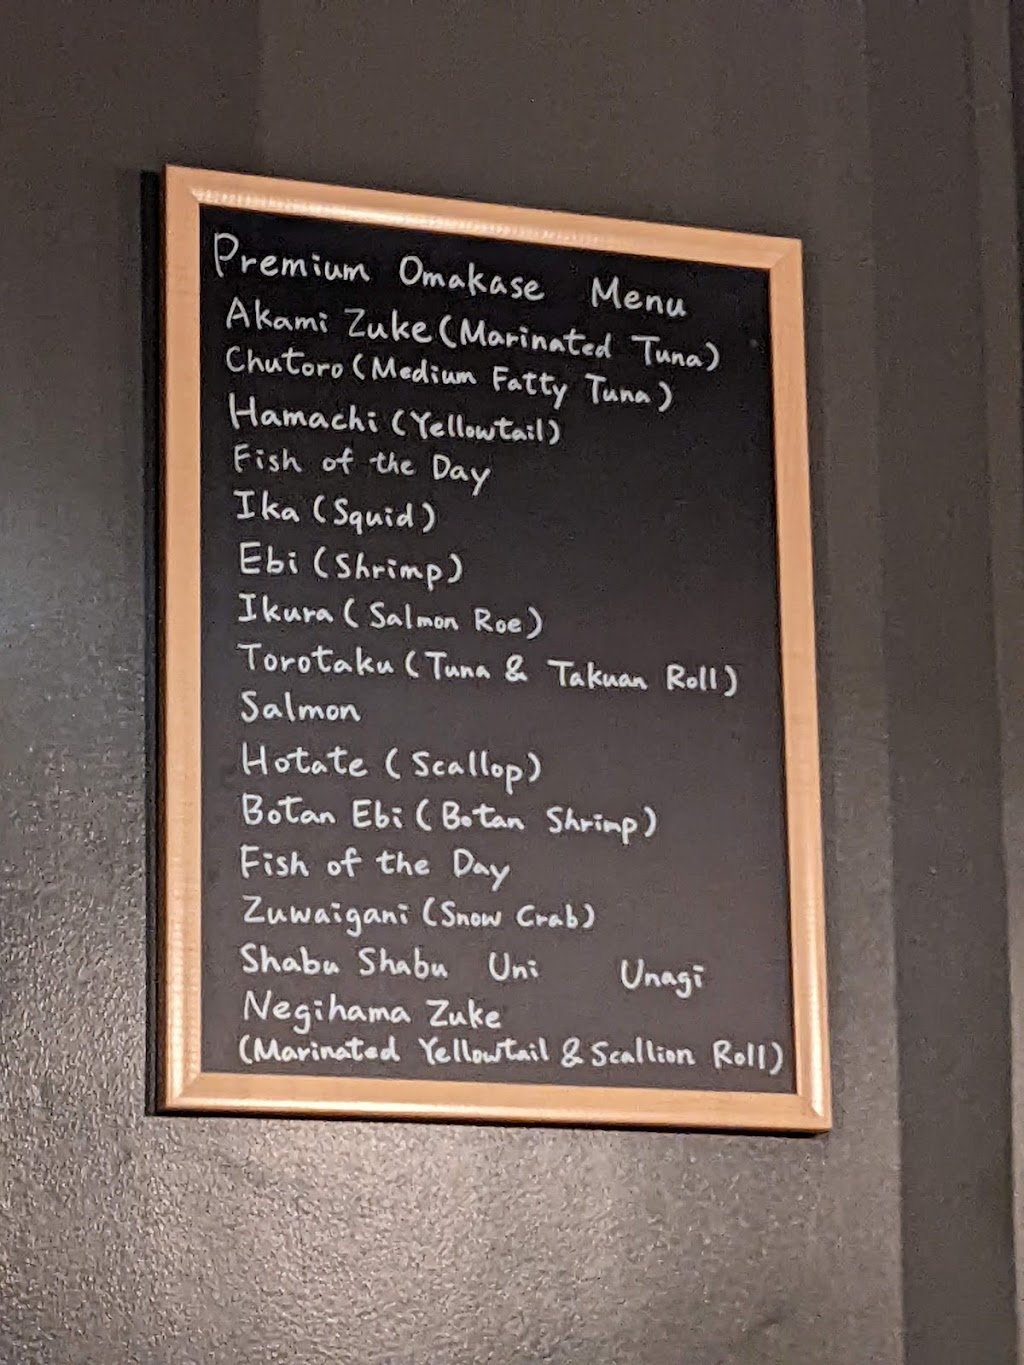 Premium Omakase Menu
Akami Zuke (Marinated Tuna)
Chutoro (Medium Fatty Tuna)
Hamachi (Yellowtail)
Fish of the Day
Ika (Squid)
Ebi (Shrimp)
Ikura (Salmon Roe)
Torotaku (Tuna & Takuan Roll)
Salmon
Hotate (Scallop)
Botan Ebi (Botan Shrimp)
Fish of the Day
Zuwaigani (Snow Crab)
Shabu Shabu Uni Unagi
Negihama Zuke
(Marinated Yellowtail & Scallion Roll)